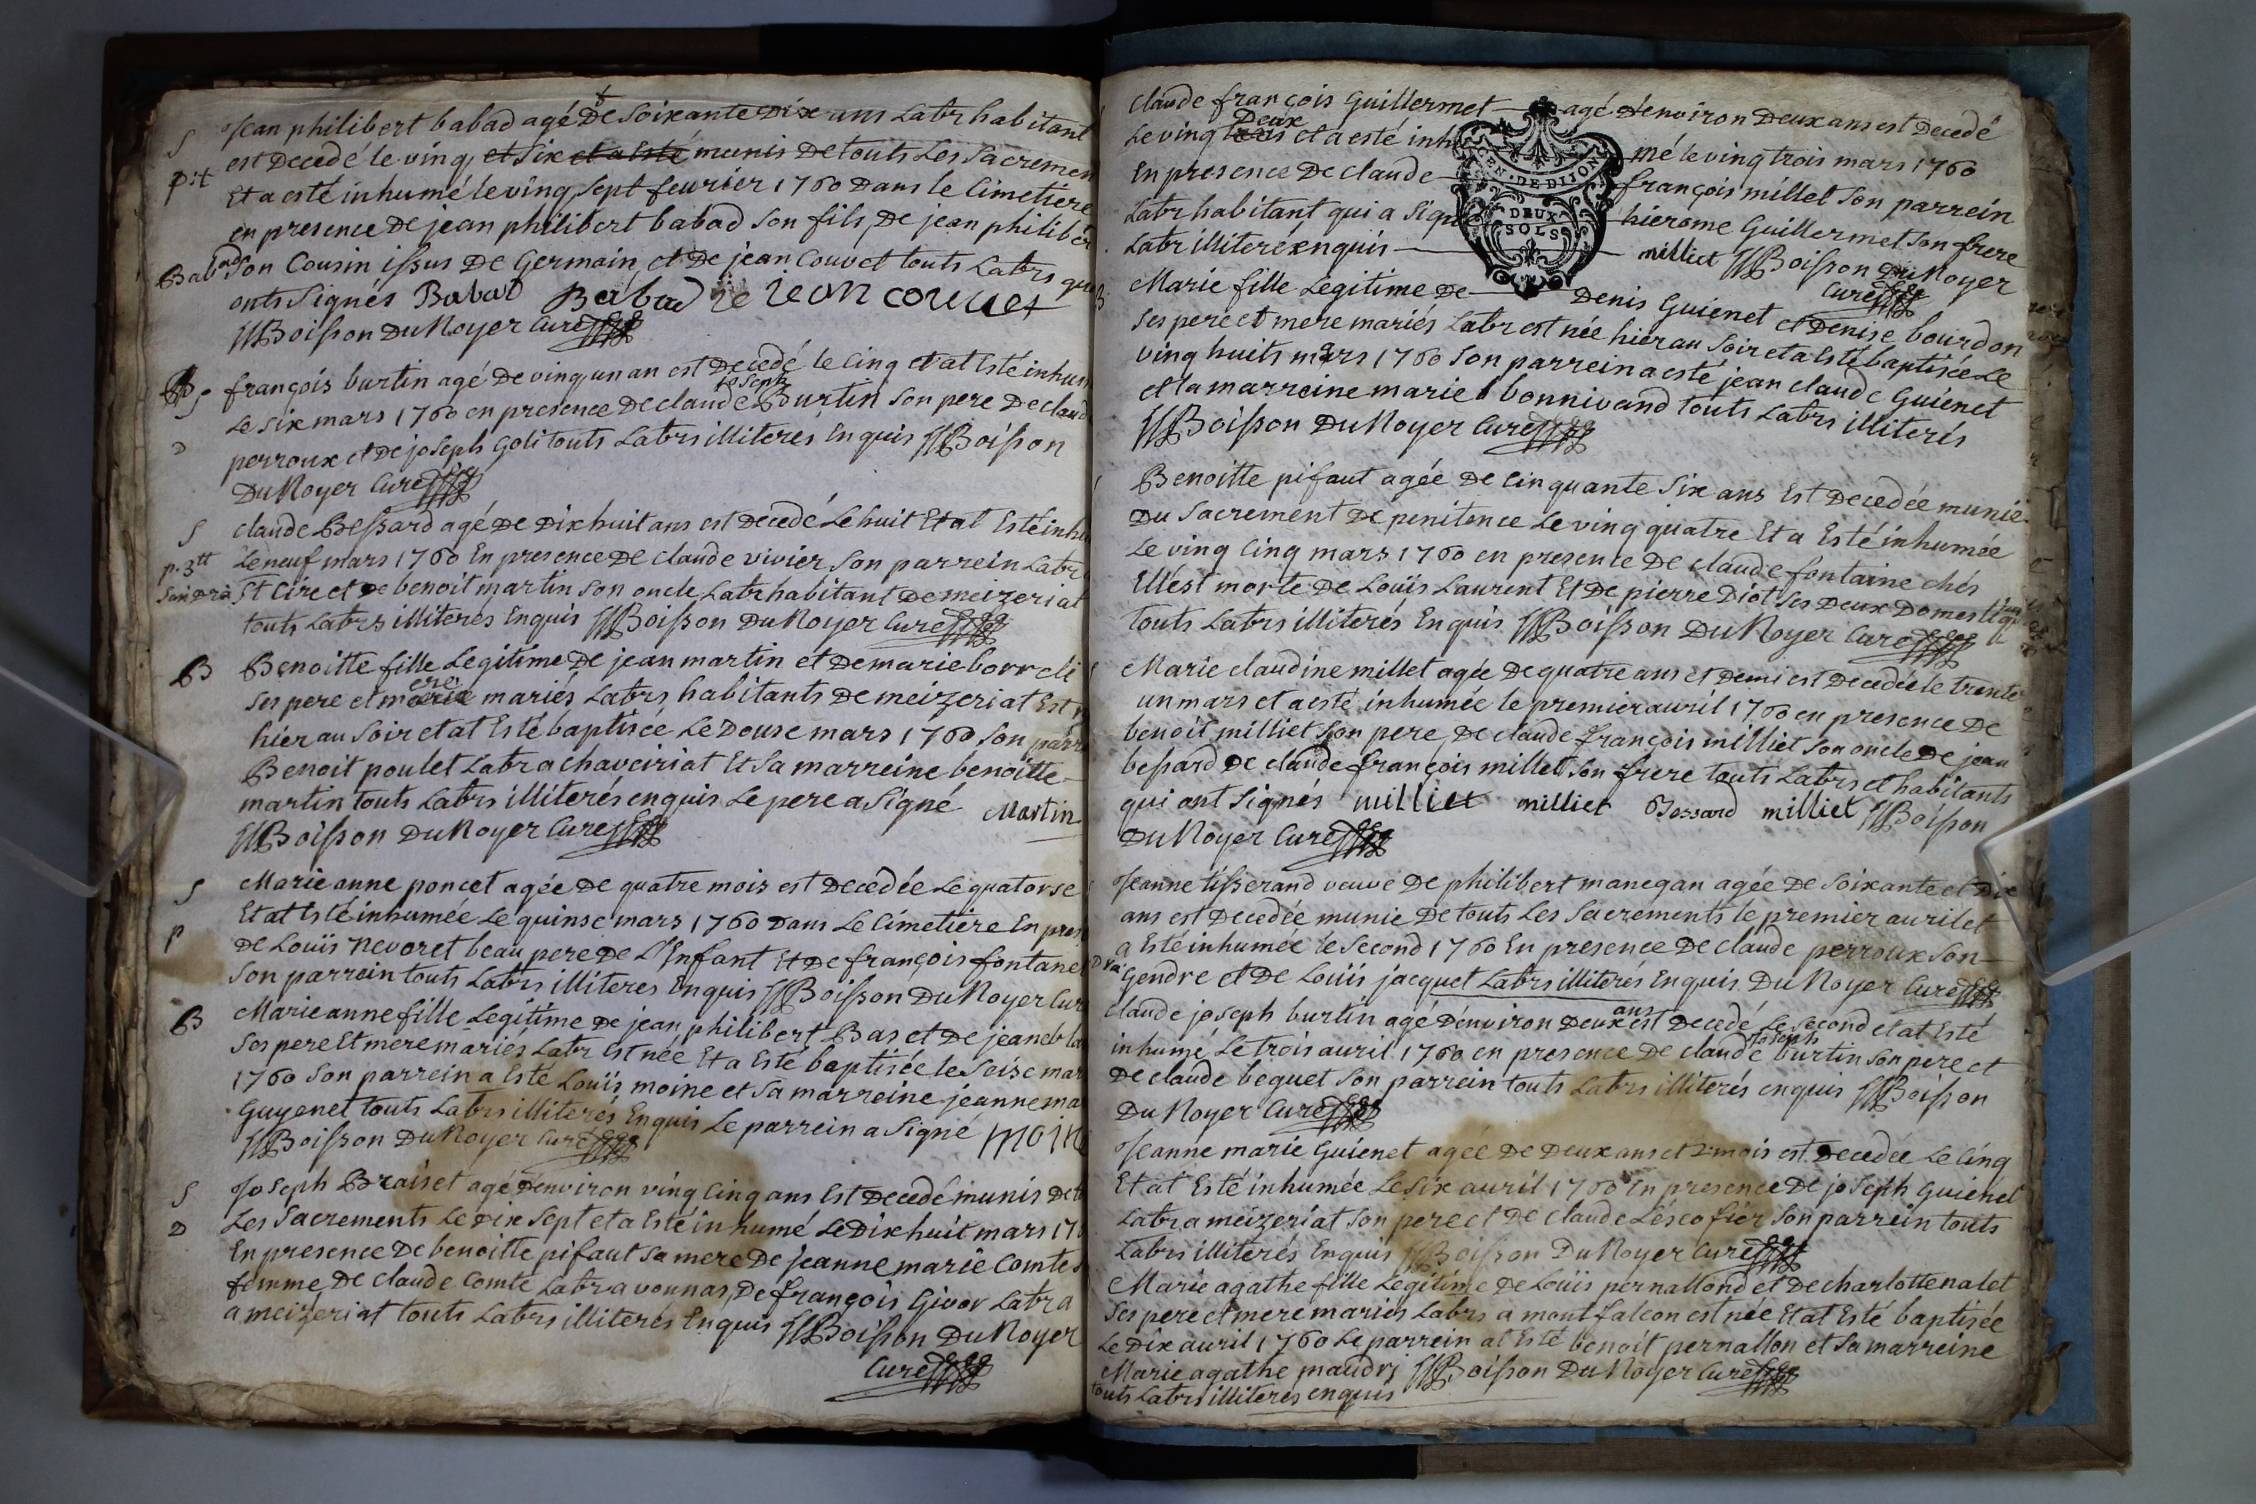 S
Jean philibert babad agé De Soixante Dix ans Labr habitant
p:t
est Decedé le ving et Six et a Esté munis De touts Les Sacremen
Et a esté inhumé le ving Sept feurier 1760 Dans le Cimetiere
en presence De jean philibert babad Son fils De jean philiber
Babad Son Cousin issus De Germain et De jean Couvet touts Labrs qui
onts Signés Babad Babad jean couuet
JJBoisson Du Noyer Curé
S
françois burtin agé De ving un an est Decedé le Cinq et at Esté inhum
Le Six mars 1760 en presence De claude joseph Burtin Son pere De claud
D
perroux et De joseph Goli touts Labrs illiteres Enquis JJBoisson
Du Noyer Curé
S
claude Bessard agé De Dix huit ans est Decedé Le huit Et at Esté inhu
p. 3tt
Le neuf mars 1760 En presence De claude vivier Son parrein Labr
St Cire et De benoit martin Son oncle Labr habitant De meizeriat
touts Labrs illiterés Enquis JJBoisson Du Noyer Curé
B
Benoitte fille Legitime De jean martin et De marie borr cli
Ses pere et mere mariés Labrs habitants De meizeriat Est
hier au Soir et at Esté baptisée Le Douse mars 1760 Son parr
Benoit poulet Labr a chaveiriat Et Sa marreine benoitte
martin touts Labrs illiterés enquis Le pere a Signé Martin
JJBoisson Du Noyer Curé
S
Marie anne poncet agée De quatre mois est Decedée Le quatorse
Et at Esté inhumée Le quinse mars 1760 Dans Le Cimetiere En pres
p
De Louïs nevoret beau pere De L'Enfant Et De françois fontane
Son parrein touts Labrs illiteres Enquis JJBoisson Du Noyer Cur
B
Marie anne fille Legitime De jean philibert Bas et De jeane bla
Ses pere Et mere mariés Labr Est née Et a Esté baptisée le Seise mar
1760 Son parrein a Esté Louïs moine et Sa marreine jeanne ma
Guyenet touts Labrs illiterés Enquis Le parrein a Signé moine
JJBoisson Du Noyer Curé
S
Joseph Braiset agé Denviron ving Cinq ans Est Decedé munis De t
D
Les Sacrements Le Dix Sept et a Esté inhumé Le Dix huit mars 17
En presence De benoitte pifaut Sa mere De jeanne marie Comte
femme De claude Comte Labr a vonnas, De françois Givor Labr a
a meizeriat touts Labrs illiterés Enquis JJBoisson Du Noyer
Curé
claude françois Guillermet agé Denviron Deux ans est Decedé
Le ving Deux et a esté inhumé le ving trois mars 1760
GEN·DE DIJON
DEUX
SOLS
En presence De claude françois millet Son parrein
Labr habitant qui a Signé hierome Guillermet Son frere
Labr illiteré enquis milliet JJBoisson Du Noyer
Curé
Marie fille Legitime De Denis Guienet et Denise bourdon
Ses pere et mere mariés Labr est née hier au Soir et a Esté baptisée Le
ving huits mars 1760 Son parrein a esté jean claude Guienet
et la marreine marie bonnivand touts Labrs illiterés
JJBoisson Du Noyer Curé
Benoitte pifaut agée De Cinquante Six ans Est Decedée munie
Du Sacrement De penitence Le ving quatre Et a Esté inhumée
Le ving Cinq mars 1760 en presente De claude fontaine chés
Ell'est morte De Louïs Laurent Et De pierre Diot Ses Deux Domestiq
touts Labrs illiterés Enquis JJBoisson Du Noyer Curé
Marie claudine millet agée De quatre ans et Demi est Decedée le trente
un mars et a esté inhumée le premier auril 1760 en presence De
benoit milliet Son pere De claude françois milliet Son oncle De jean
bessard De claude françois millet Son frere touts Labrs et habitants
qui ont Signés milliet milliet Bessard milliet JJBoisson
Du Noyer Curé
Jeanne tisserand veuve De philibert manegan agée De Soixante et Dix
ans est Decedée munie De touts Les Sacrements le premier auril et
a Esté inhumée le Second 1760 En presence De claude perroux Son
Gendre et De Louïs jacquet Labrs illiterés Enquis Du Noyer Curé
claude joseph burtin agé Denviron Deux ans est Decedé Le Second et at Esté
inhumé Le trois auril 1760 en presence De claude joseph burtin Son pere et
De claude beguet Son parrein touts Labrs illiterés enquis JJBoisson
Du Noyer Curé
Jeanne marie Guienet agée De Deux ans et 2 mois est Decedée Le Cinq
Et at Esté inhumée Le Six auril 1760 En presence De joseph Guienet
Labr a meizeriat Son pere et De claude Lescofier Son parrein touts
Labrs illiterés Enquis JJBoisson Du Noyer Curé
Marie agathe fille Legitime De Louïs pernallond et De charlotte nalet
Ses pere et mere mariés Labrs a montfalcon est née Et at Esté baptisée
Le Dix auril 1760 Le parrein at Esté benoit pernallon et Sa marreine
Marie agathe maudri JJBoisson Du Noyer Curé
touts Labrs illiterés enquis